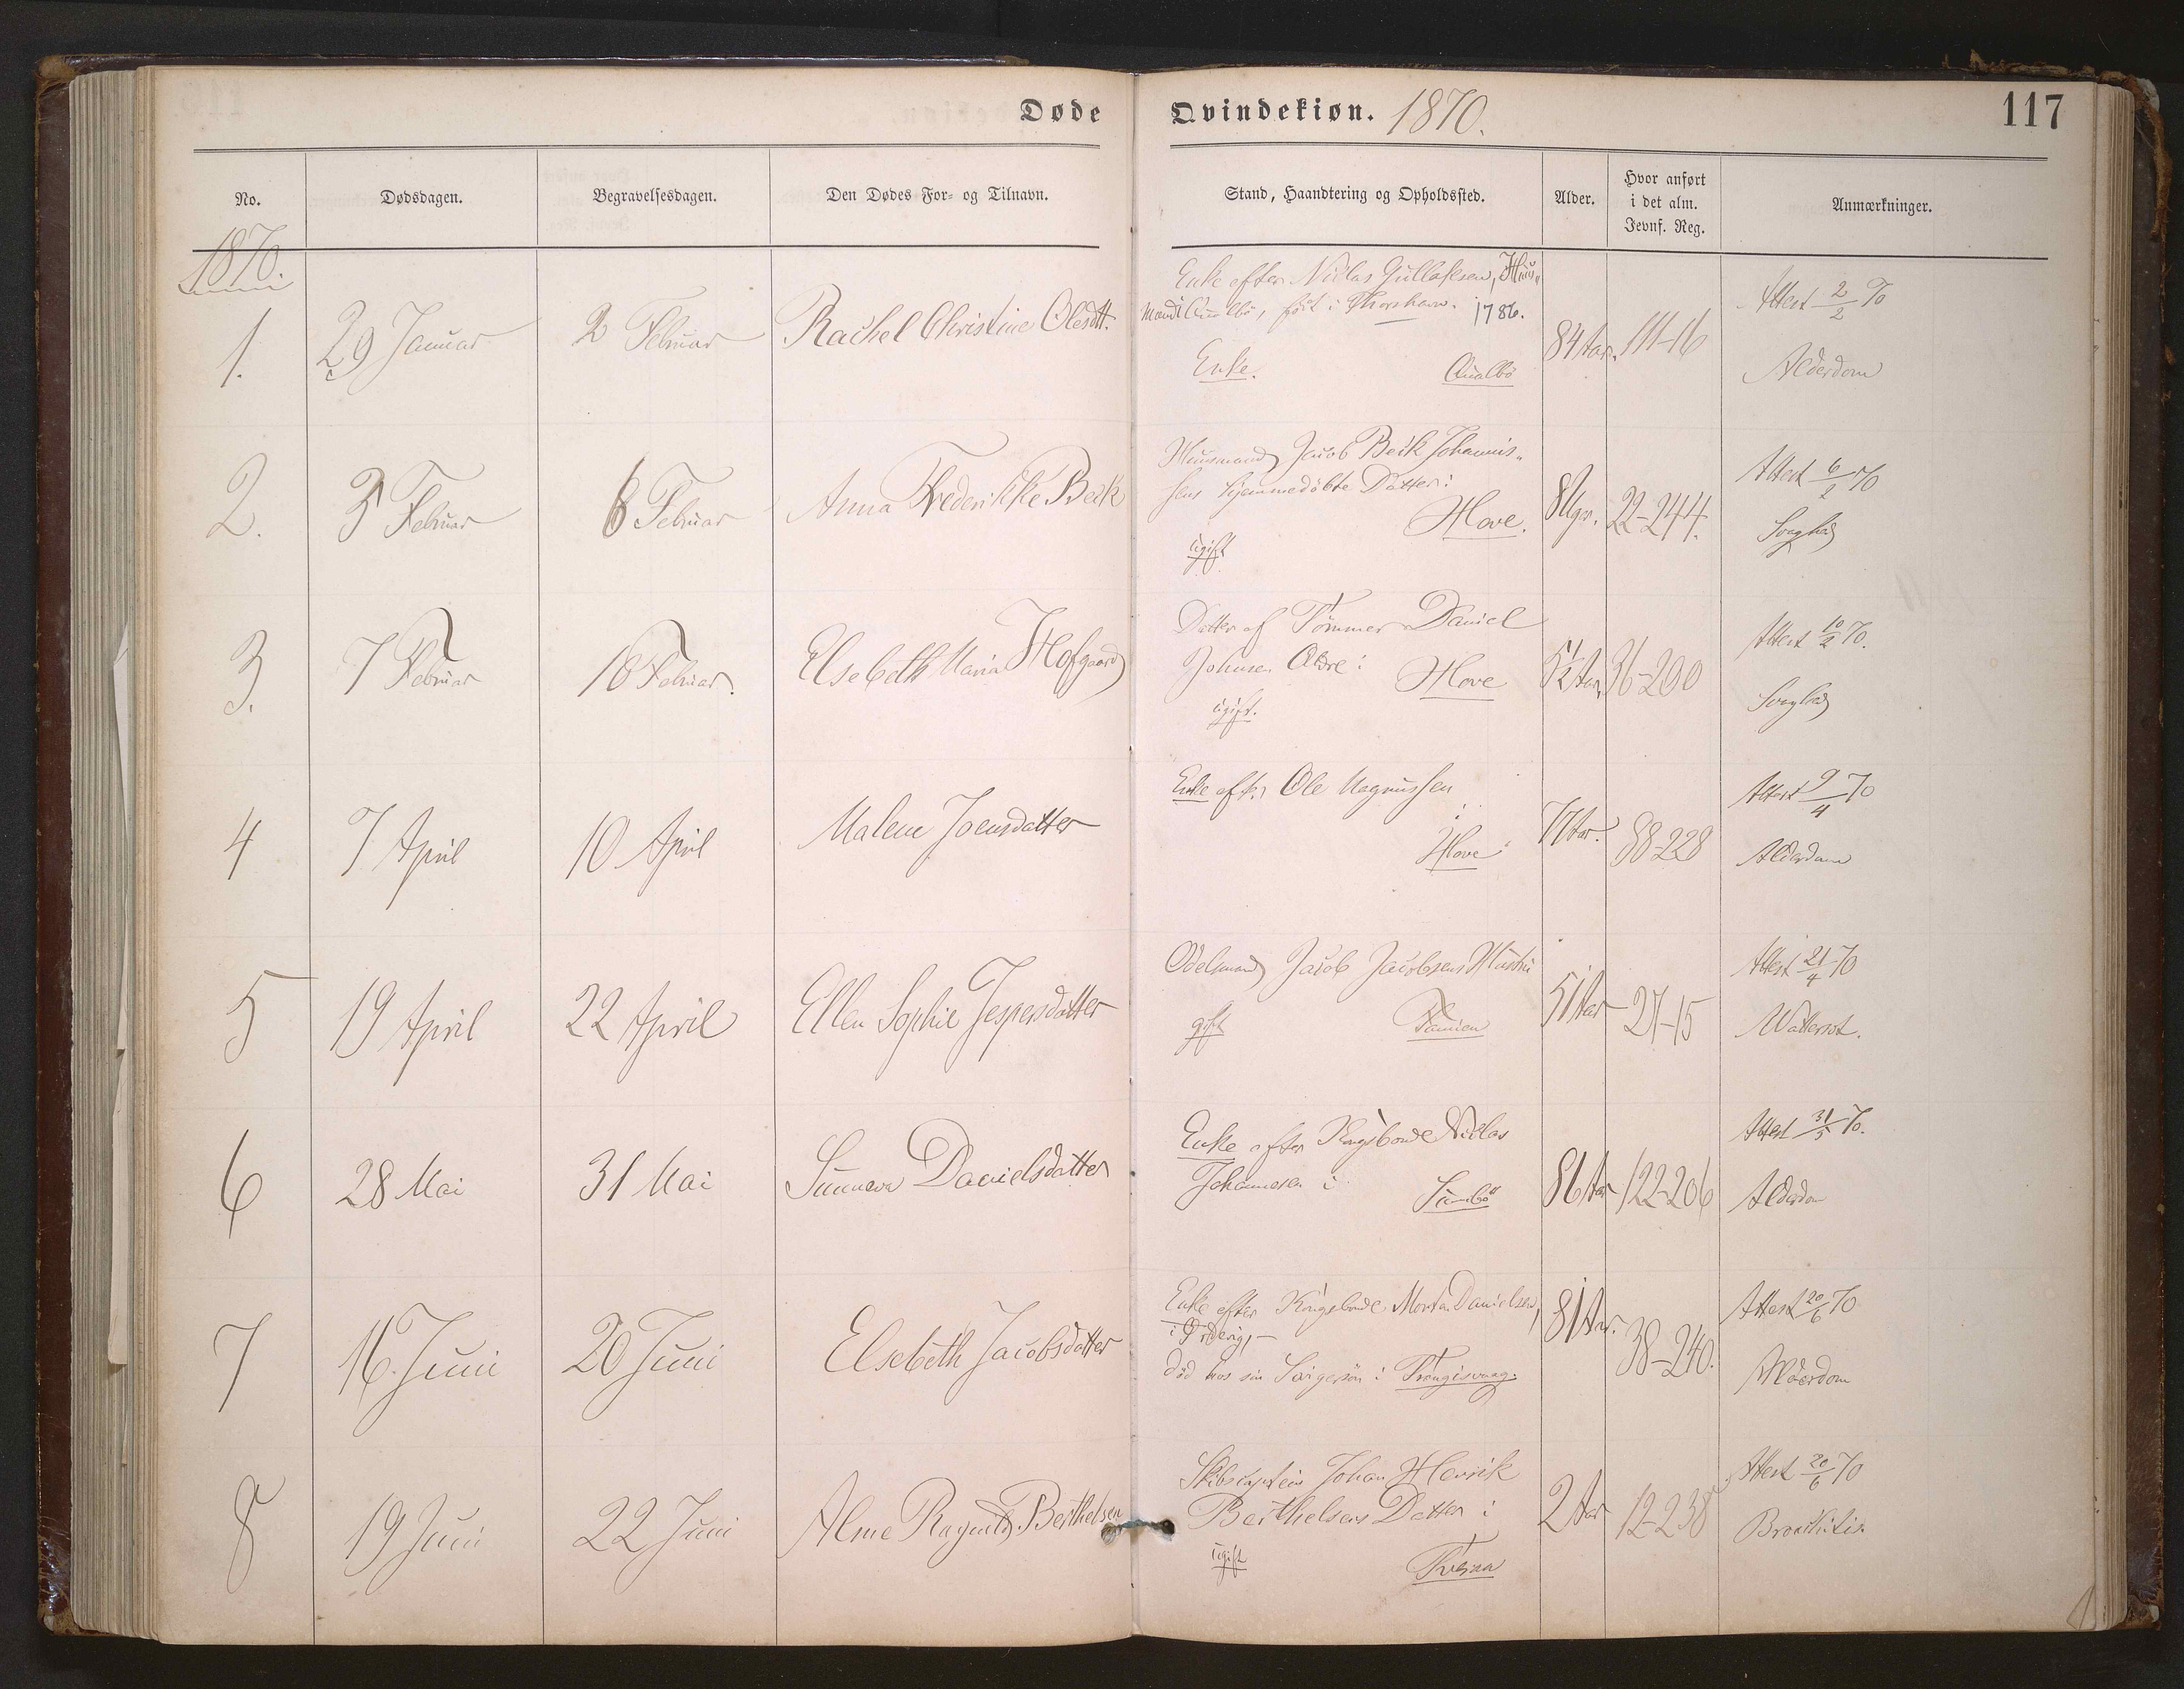 Døde Qvindekiøn. 1870. 117
No. Dødsdagen. Begravelsesdagen. Den Dødes For- og Tilnavn. Stand, Haandtering og Opholdssted. Alder. Hvor anført i det alm. Jevnf. Reg. Anmærkninger.
1870.
Enke efter Niclas Gullaksen, Huus-
mand i Qualbö, født i Thorshavn. 1786.
1. 29 Januar 2 Februar Rachel Christine Olesdtt. 84 Aar. 111-16 Attest 2/2 70
Enke. Qualbö Alderdom
Huusmand Jacob Beck Johannis-
sens hjemmedöbte Datter i
2. 3 Februar 6 Februar Anna Frederikke Beck Hove. 8 Ugr. 22-244. Attest 6/2 70
ugift Svaghed
Datter af Tömmer Daniel
Johnsen i
3. 7 Februar 10 Februar. Elsebeth Maria Hofgaard Hove 5½ Aar. 36-200 Attest 10/2 70.
ugift. Svaghed
Enke eft. Ole Magnussen
i
4 7 April 10 April Malene Joensdatter Hove 77 Aar. 88-228 Attest 9/4 70
Alderdom
Odelsmand Jacob Jacobsens Hustru
5 19 April 22 April Ellen Sophie Jespersdatter 51 Aar 27-15 Attest 21/4 70
gift Famien Vattersot.
Enke efter Kongsbonde Niclas
Johannesen i
6 28 Mai 31 Mai Sunneva Danielsdatter Sumbö 86 Aar 122-206 Attest 31/5 70.
Alderdom
Enke efter Kongsbonde Morten Danielsen,
i Ördevig,
död hos sin Svigersön i Trangisvaag.
7 16. Juni 20 Juni Elsebeth Jacobsdatter 81 Aar. 38-240. Attest 20/6 70
Alderdom
Skibscaptein Johan Henrik
Berthelsens Datter i
8 19 Juni 22 Juni Alme Ragnild Berthelsen 2 Aar 12-238 Attest 20/6 70
ugift Tveraa Bronchitis